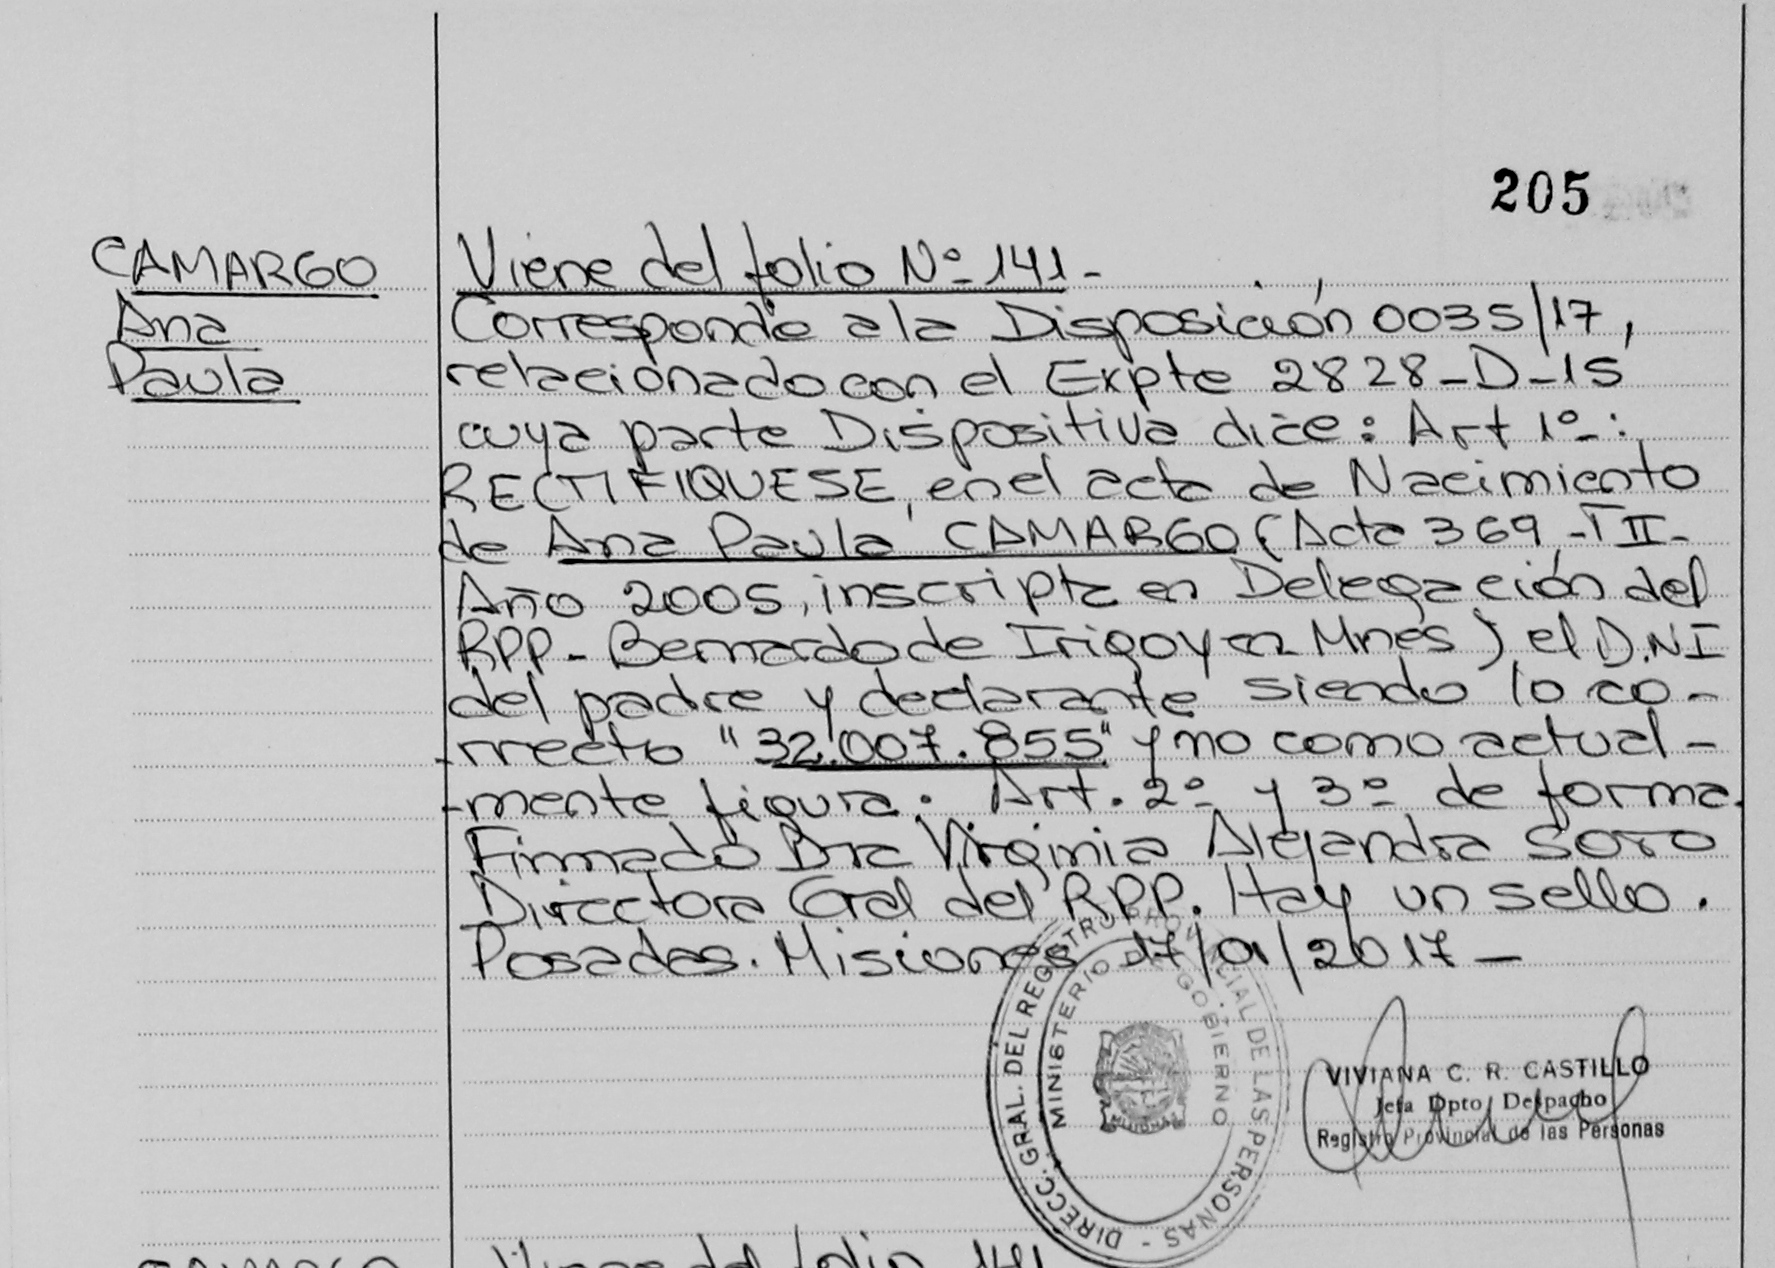 205
CAMARGO
Ana
Paula
Viene del folio Nº 141-
Corresponde a la Disposición 0035/17,
relacionado con el Expte 2828-D-15
cuya parte Dispositiva dice: Art 1º:
RECTIFIQUESE, en el acta de Nacimiento
de Ana Paula CAMARGO (Acta 369 -T II-
Año 2005, inscripta en Delegación del
RPP- Bernardo de Irigoyen Mnes) el D.NI
del padre y declarante siendo lo co-
-rrecto "32.007.855" y no como actual-
-mente figura. Art. 2º y 3º de forma.
Firmado Dra Virginia Alejandra SOTO
Directora Gral del RPP. Hay un sello.
Posadas. Misiones 17/01/2017-
DIRECC. GRAL. DEL REGISTRO PROVINCIAL DE LAS PERSONAS -
MINISTERIO DE GOBIERNO
MISIONES
VIVIANA C. R. CASTILLO
Jefa Dpto Despacho
Registro Provincial de las Personas
CAMARGO
Viene del folio 141